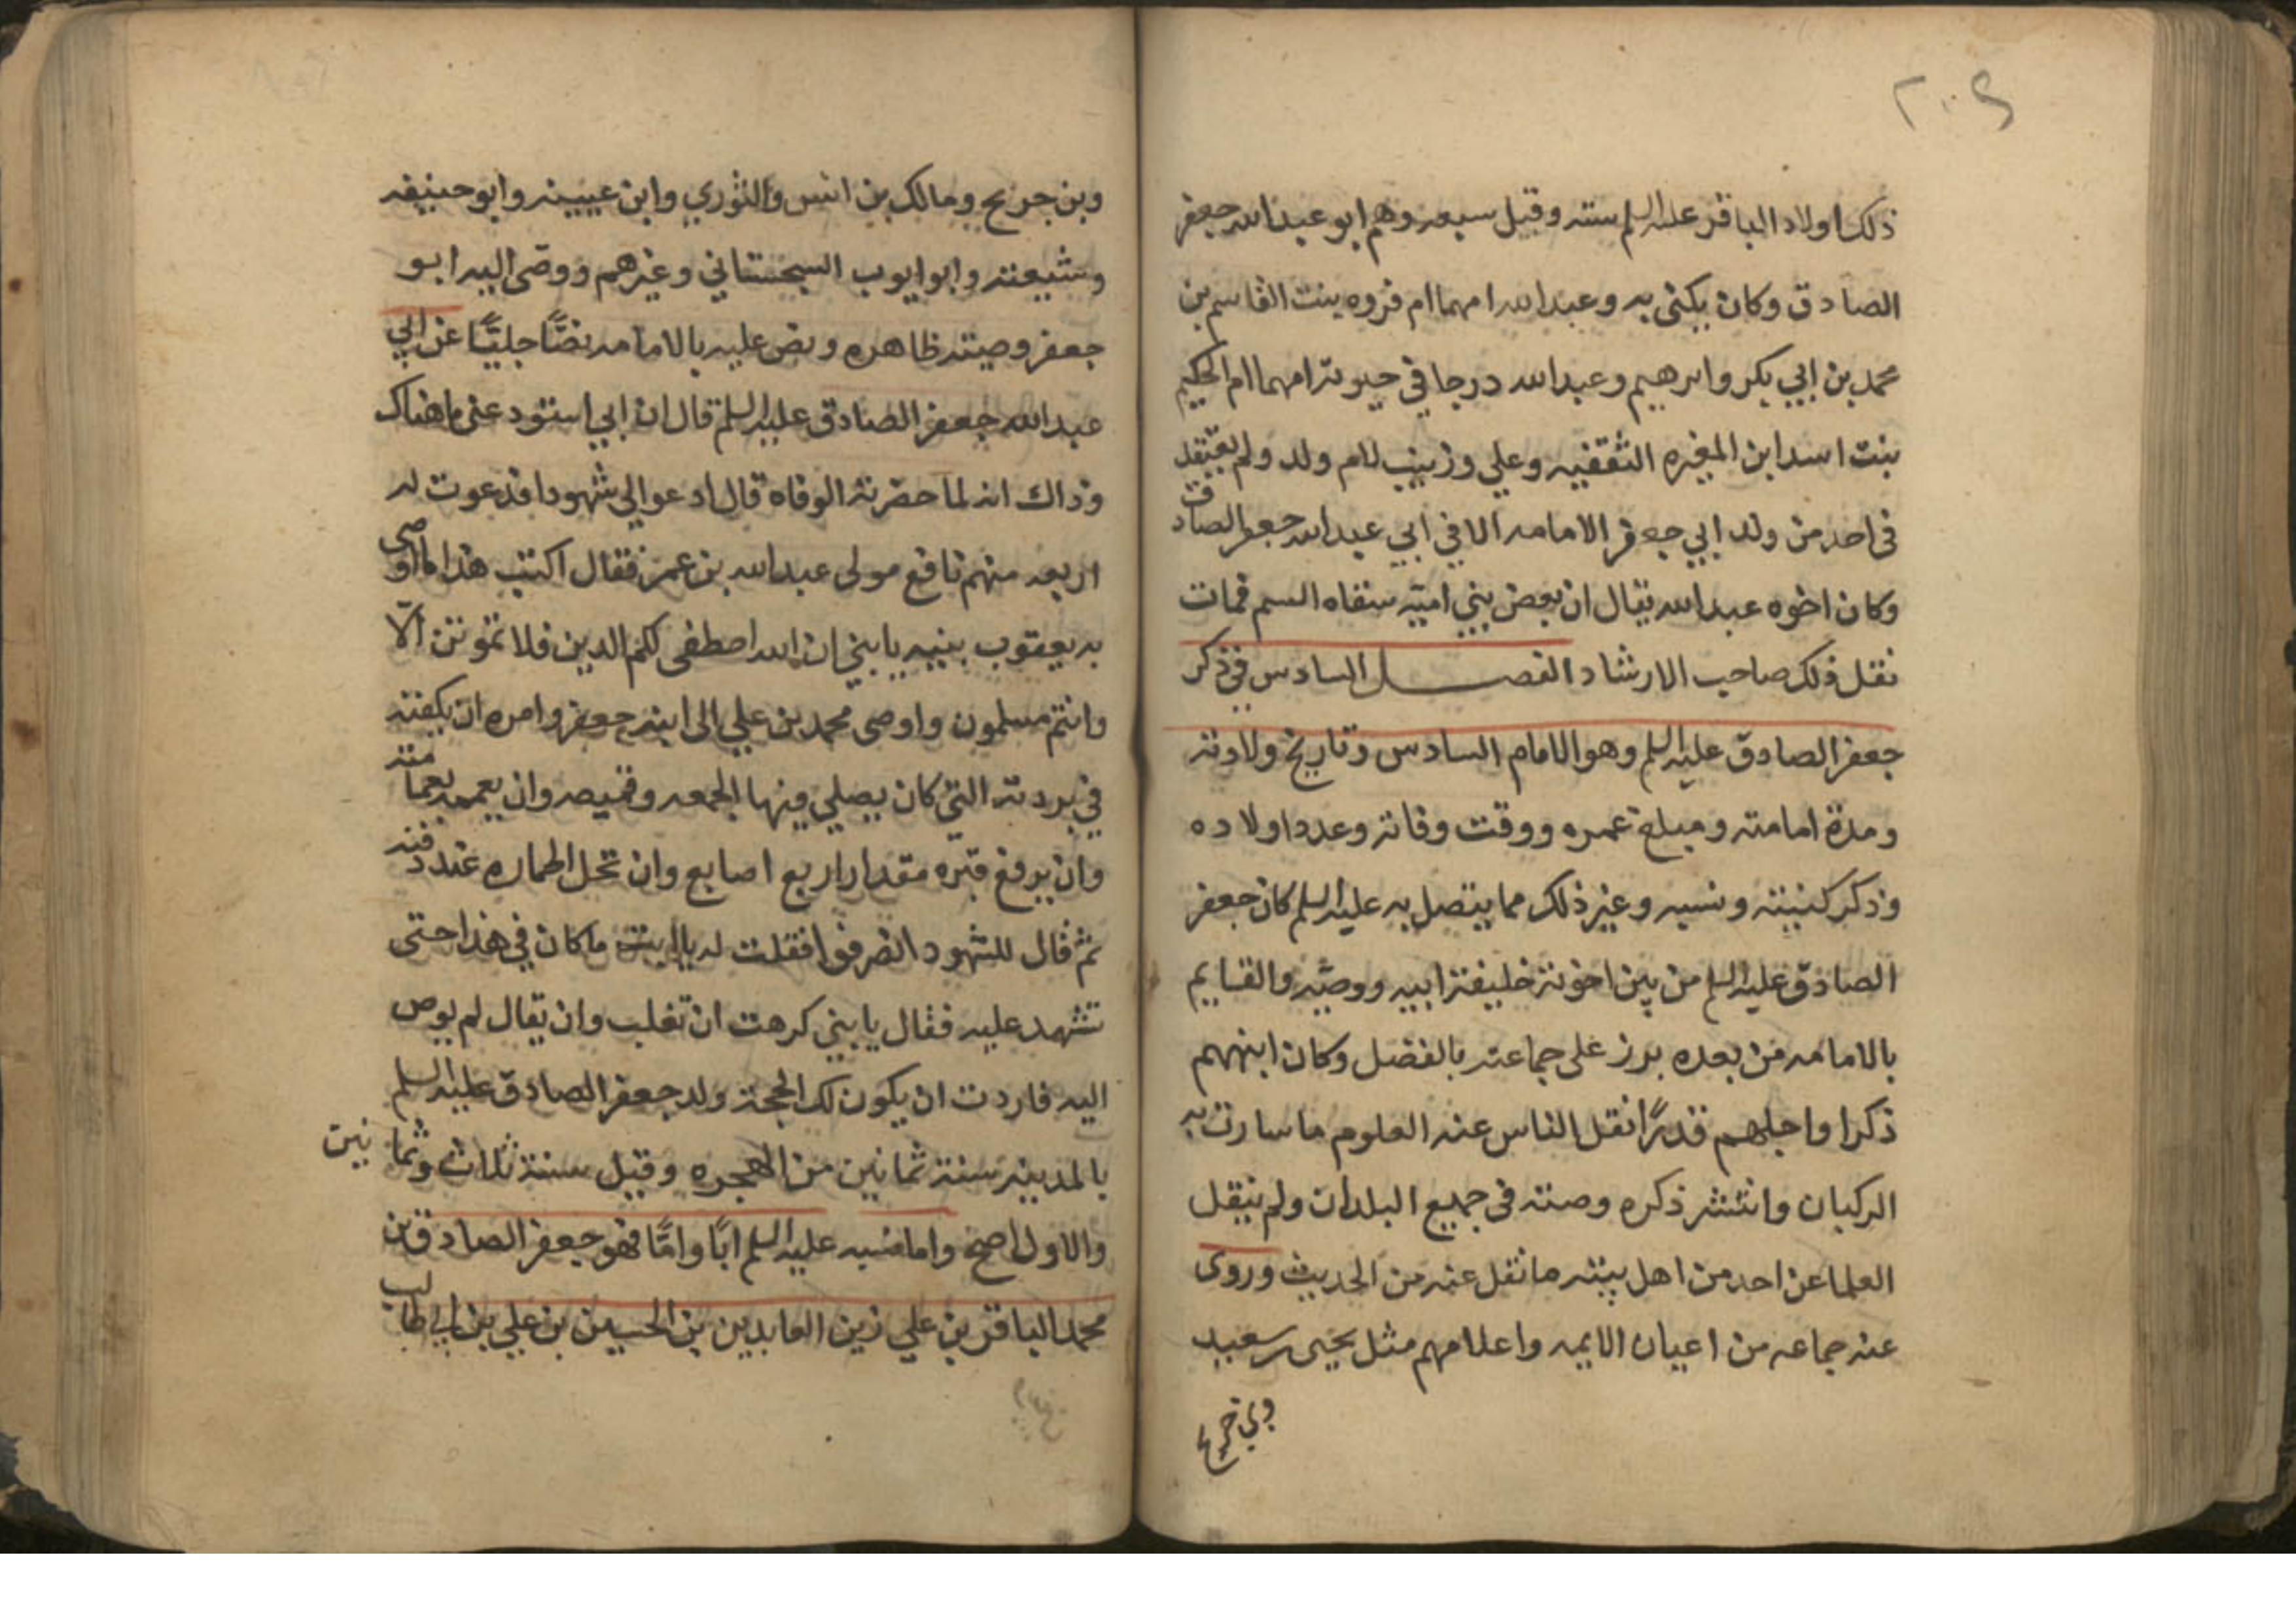 ٢٠٩
ذلك اولاد الباقر عليه السلم سته وقيل سبعه وهم ابو عبدالله جعفر
الصادق وكان يكنى به وعبدالله امهما ام فروه بنت القاسم بن
محمد بن ابي بكر وابرهيم وعبدالله درجا في حيوته امهما ام الحكيم
بنت اسد ابن المغيره الثقفيه وعلي وزينب لام ولد ولم يعتقد
في احد من ولد ابي جعفر الامامه الا في ابي عبدالله جعفر الصادق
وكان اخوه عبدالله يقال ان بعض بني اميه سقاه السم فمات
نقل ذلك صاحب الارشاد الفصل السادس في ذكر
جعفر الصادق عليه السلم وهو الامام السادس وتاريخ ولادته
ومدة امامته ومبلغ عمره ووقت وفاته وعدد اولاده
وذكر كنيته ونسبه وغير ذلك مما يتصل به عليه السلم كان جعفر
الصادق عليه السلم من بين اخوته خليفة ابيه ووصيه والقايم
بالامامه من بعده برز على جماعته بالفضل وكان ابنههم
ذكرا واجلهم قدرًا نقل الناس عنه العلوم ما سارت به
الركبان وانتشر ذكره وصيته في جميع البلدان ولم ينقل
العلما عن احد من اهل بيته ما نقل عنه من الحديث وروى
عنه جماعه من اعيان الايمه واعلامهم مثل يحيى بن سعيد
وبن جريح
وبن جريح ومالك بن انس والثوري وابن عيينه وابو حنيفه
وشيعته وابو ايوب السجستاني وغيرهم ووصى اليه ابو
جعفر وصيته ظاهره ونص عليه بالامامه نصًّا جليًّا عن ابي
عبدالله جعفر الصادق عليه السلم قال ان ابي استودعني ما هناك
وذاك انه لما حضرته الوفاه قال ادعوا لي شهودا فدعوت له
اربعه منهم نافع مولى عبدالله بن عمر فقال اكتب هذا ما اوصى
به يعقوب بنيه يا بني ان الله اصطفى لكم الدين فلا تموتن الّا
وانتم مسلمون واوصى محمد بن علي الى ابنه جعفر وامره ان يكفنه
في بردته التي كان يصلي فيها الجمعه وقميصه وان يعممه بعمامته
وان يرفع قبره مقدار اربع اصابع وان تحل اطماره عند دفنه
ثم قال للشهود انصرفوا فقلت له يا ابت ما كان في هذا حتى
تشهد عليه فقال يا بني كرهت ان تغلب وان يقال لم يوص
اليه فاردت ان يكون لك الحجة ولد جعفر الصادق عليه السلم
بالمدينه سنة ثمانين من الهجره وقيل سنة ثلاث وثمانين
والاول اصح واما نسبه عليه السلم ابًا وامًّا فهو جعفر الصادق بن
محمد الباقر بن علي زين العابدين بن الحسين بن علي بن ابي طالب